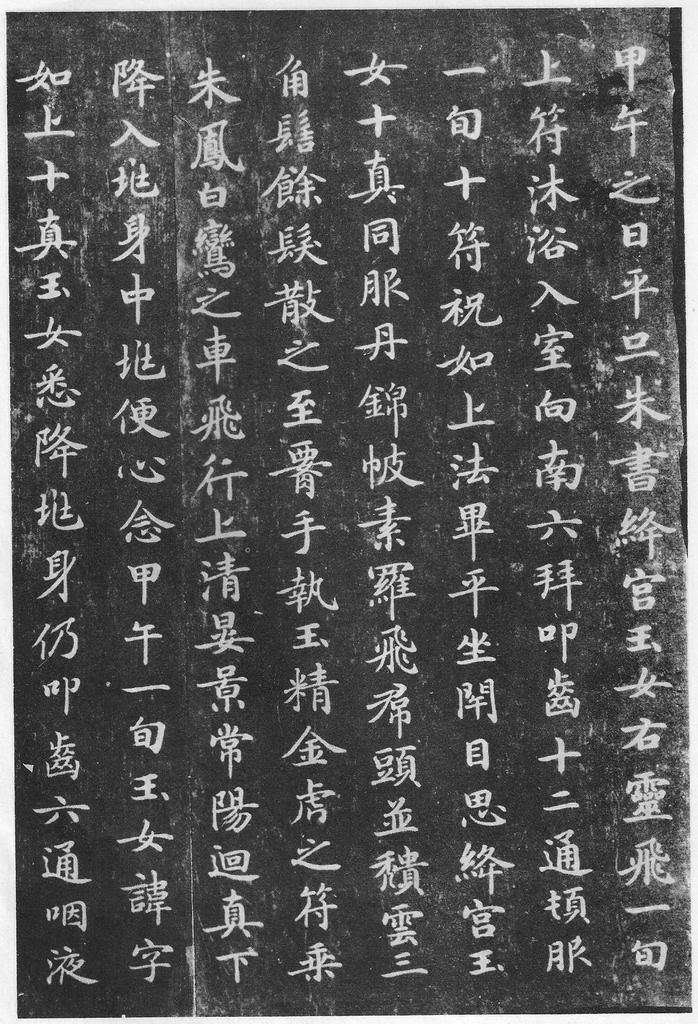 甲午之日平旦朱書絳宮玉女右靈飛一旬
上符沐浴入室向南六拜叩齒十二通頓服
一旬十符祝如上法畢平坐閉目思絳宮玉
女十真同服丹錦帔素羅飛帬頭並穨雲三
角髻餘髮散之至胷手執玉精金虎之符乘
朱鳳白鸞之車飛行上清晏景常陽迴真下
降入兆身中兆便心念甲午一旬玉女諱字
如上十真玉女悉降兆身仍叩齒六通咽液